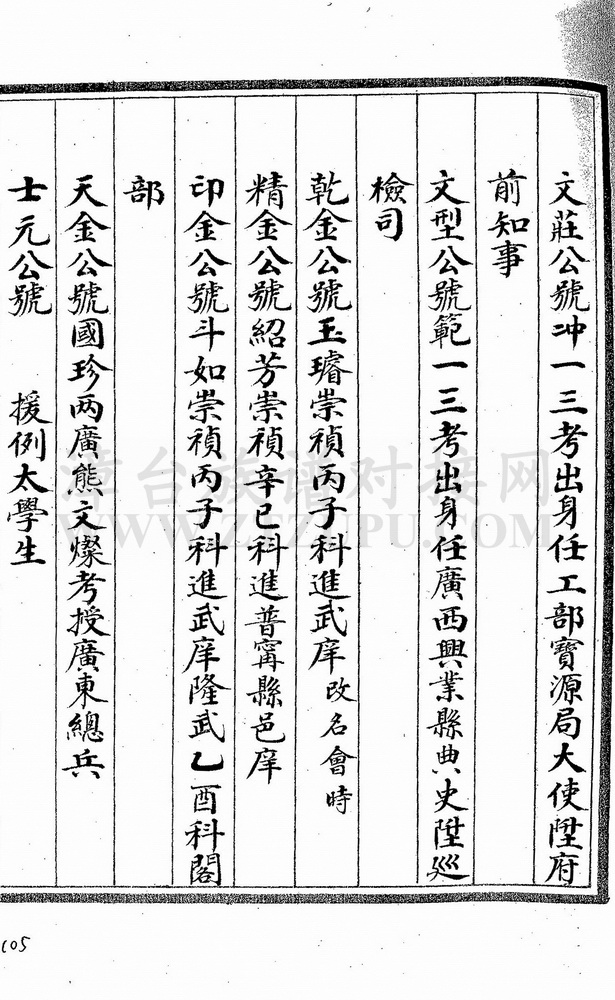 文莊公號冲一三考出身任工部寶源局大使陞府
前知事
文型公號範一三考出身任廣西興業縣典史陞廵
檢司
乾金公號玉璿崇禎丙子科進武庠改名會時
精金公號紹芳崇禎辛已科進普寗縣邑庠
印金公號斗如崇禎丙子科進武庠隆武乙酉科閣
部
天金公號國珍两廣熊文燦考授廣東總兵
士元公號 援例太學生
漳台族谱对接网
WWW.ZTZUPU.COM
105